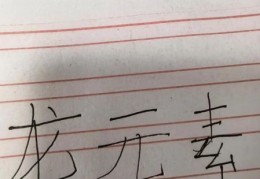 龙元素